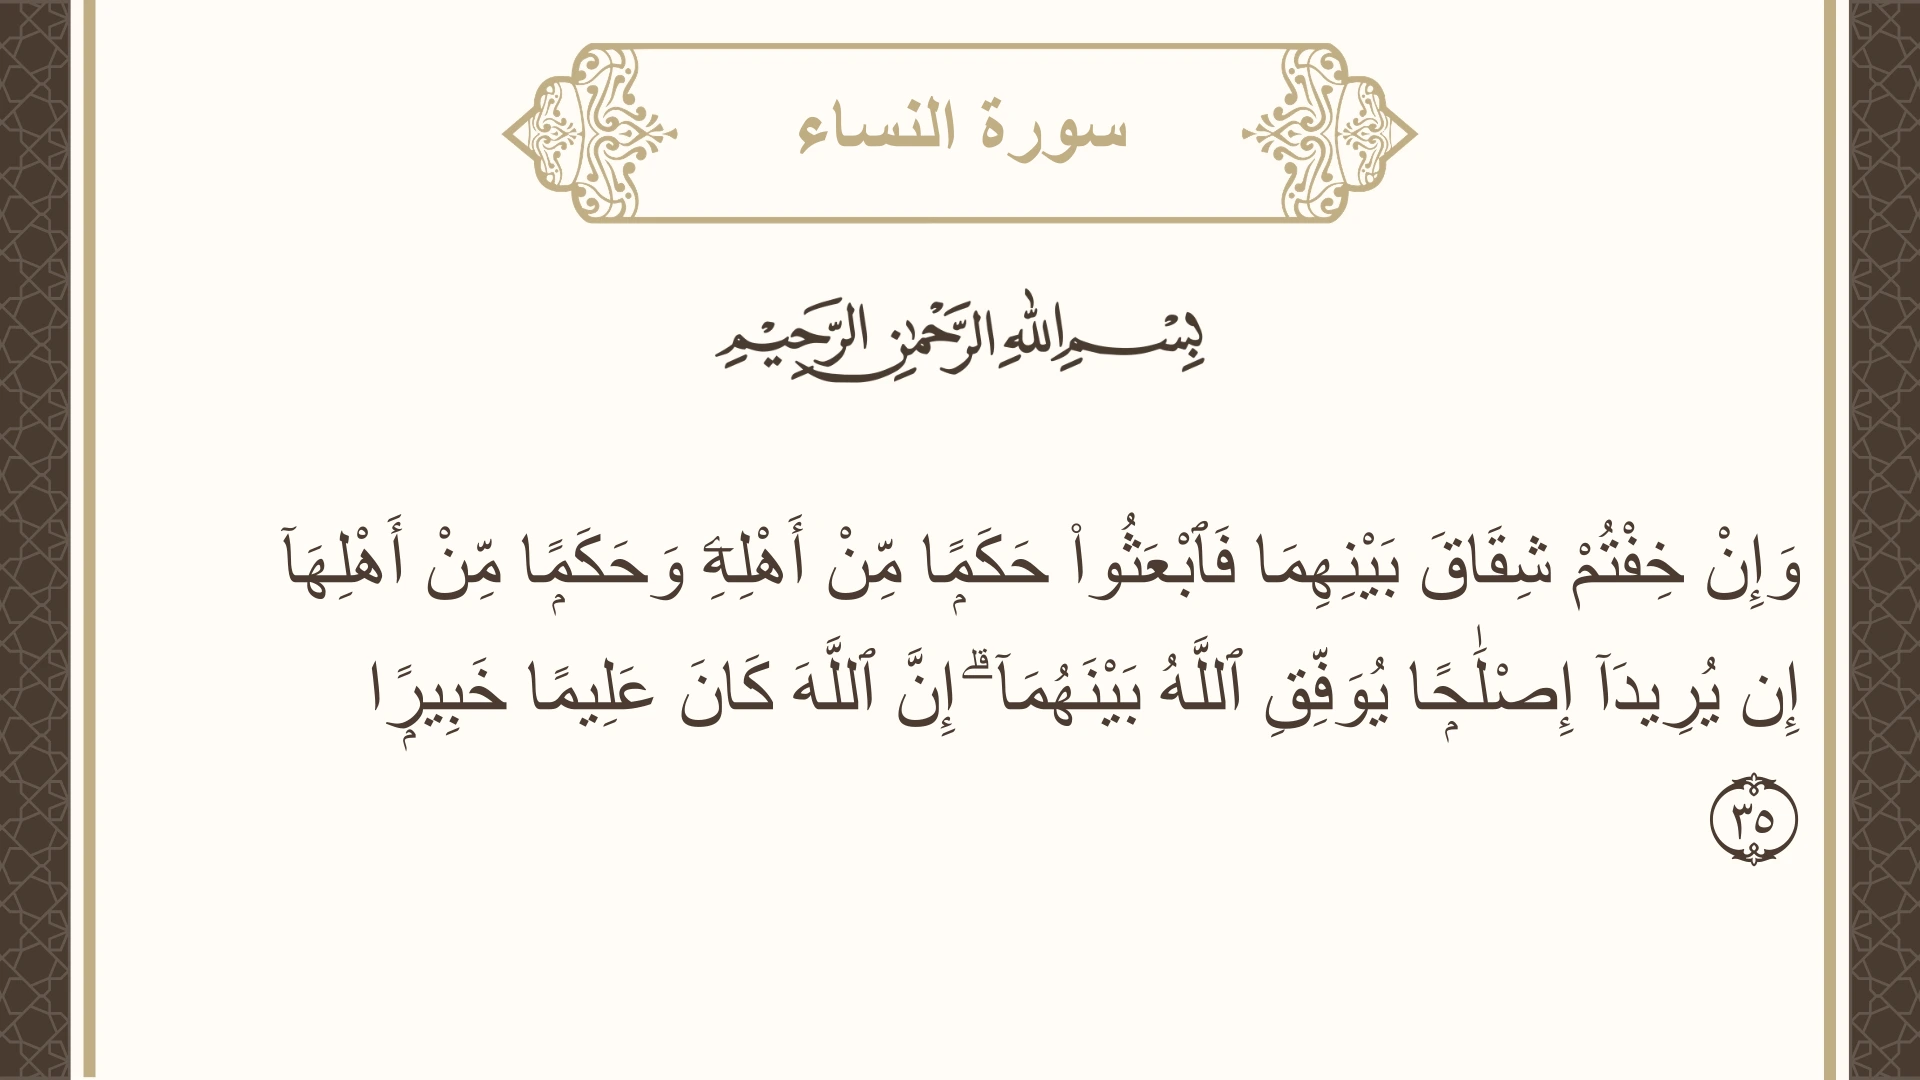 سورة النساء
بِسْمِ اللهِ الرَّحْمٰنِ الرَّحِيْمِ
وَإِنْ خِفْتُمْ شِقَاقَ بَيْنِهِمَا فَٱبْعَثُوا۟ حَكَمًۭا مِّنْ أَهْلِهِۦ وَحَكَمًۭا مِّنْ أَهْلِهَآ
إِن يُرِيدَآ إِصْلَـٰحًۭا يُوَفِّقِ ٱللَّهُ بَيْنَهُمَآ ۗ إِنَّ ٱللَّهَ كَانَ عَلِيمًا خَبِيرًۭا
٣٥